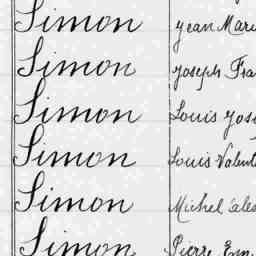 Simon Jean Mari
Simon Joseph Fra
Simon Louis Jos
Simon Louis Valent
Simon Michel Céles
Simon Pierre Em